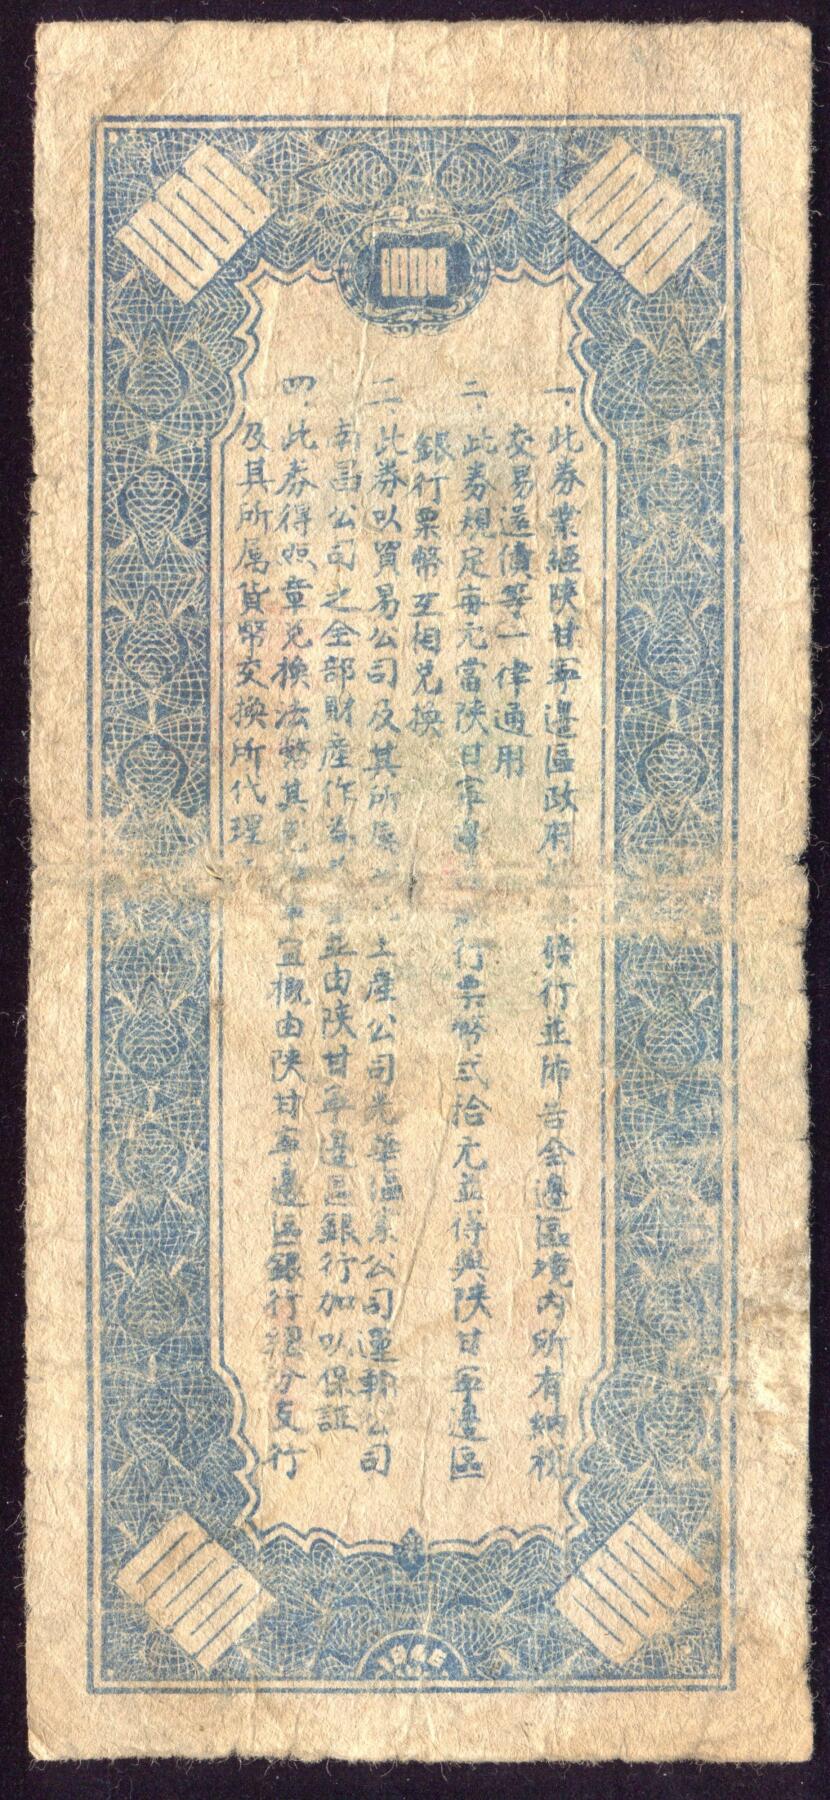 1000
1000
1000
一、此券業經陝甘寧邊區政府 發行並佈告全邊區境内所有納稅
交易還債等一律通用
二、此券規定每元當陝甘寧邊 行票幣弍拾元並得與陝甘寧邊區
銀行票幣互相兌換
三、此券以貿易公司及其所屬 土產公司光華鹽業公司運輸公司
南昌公司之全部財產作為 並由陝甘寧邊區銀行加以保証
四、此券得照章兌換法幣其兌 事宜概由陝甘寧邊區銀行總分支行
及其所属貨幣交換所代理
1000
1000